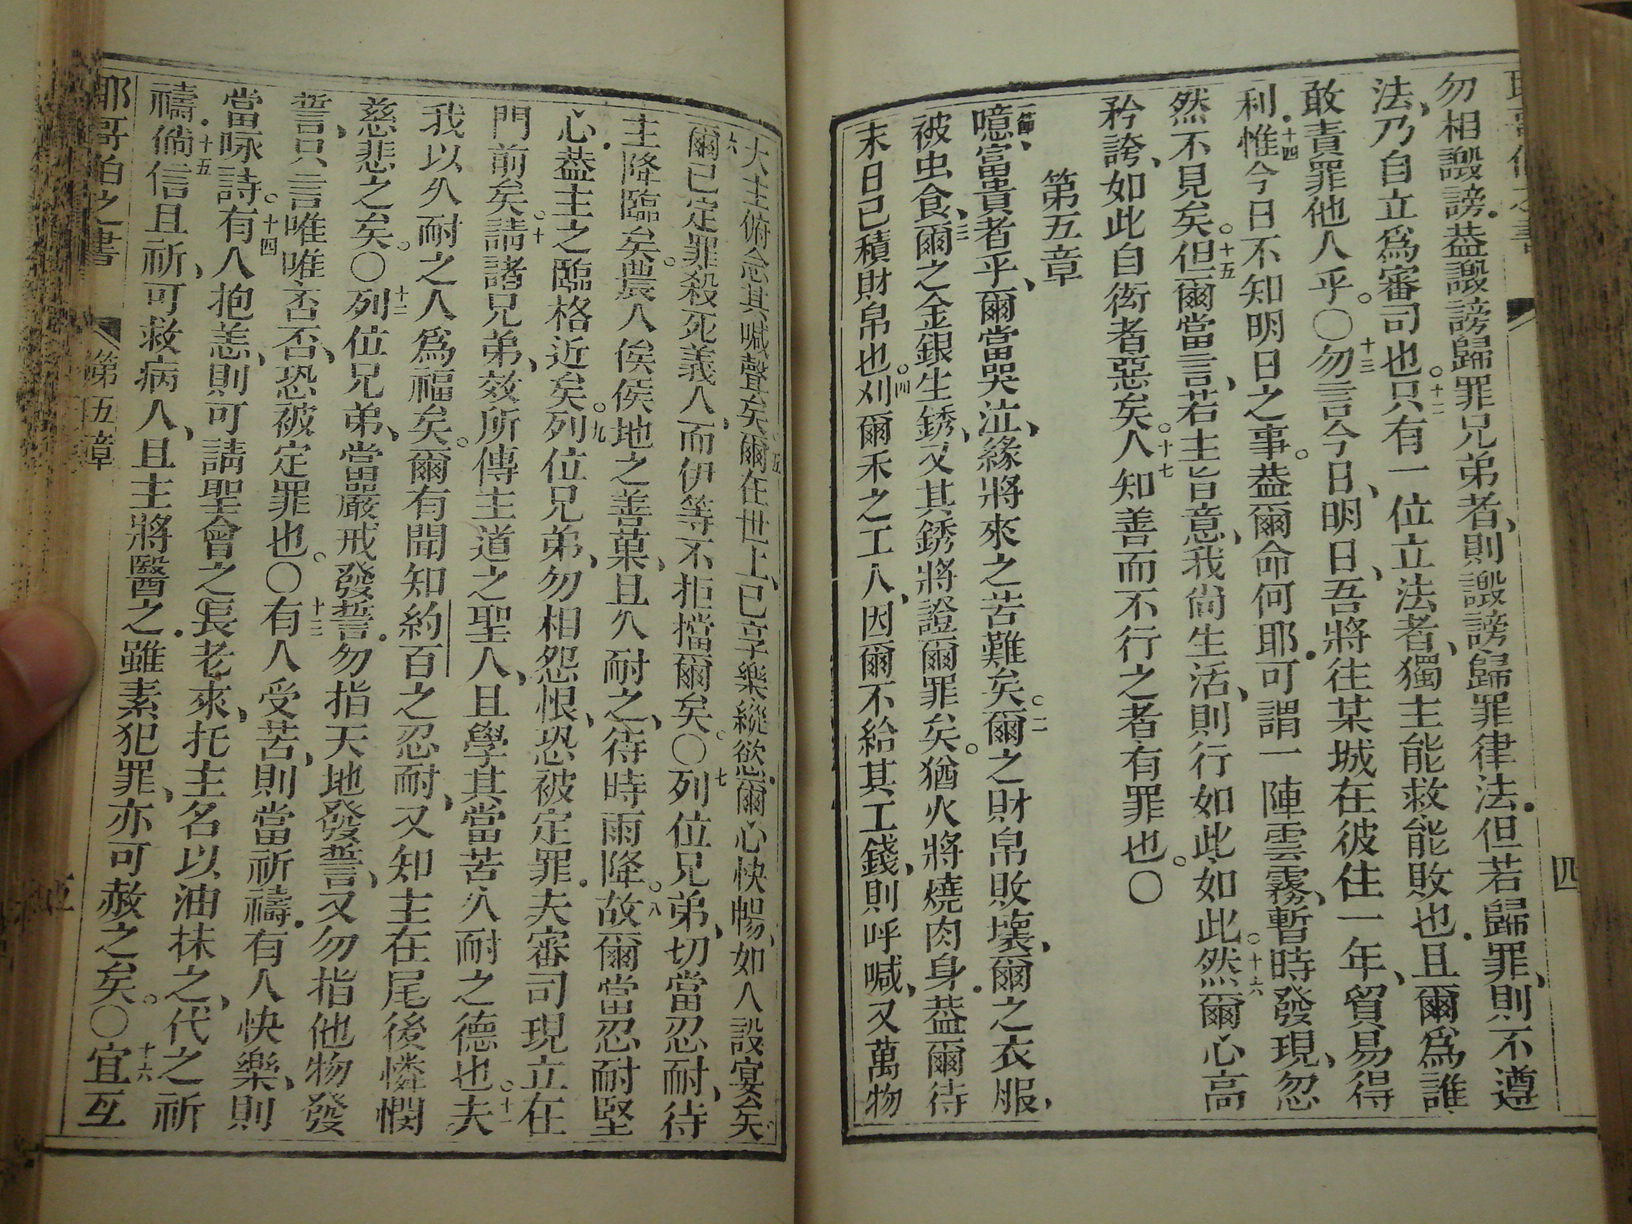 勿相譭謗．蓋譭謗歸罪兄弟者、則譭謗歸罪律法．但若歸罪、則不遵
法、乃自立爲審司也。十二只有一位立法者、獨主能救、能敗也．且爾爲誰、
敢責罪他人乎。〇十三勿言今日、明日、吾將往某城在彼住一年、貿易得
利．十四惟今日不知明日之事。蓋爾命何耶．可謂一陣雲霧、暫時發現、忽
然不見矣。十五但爾當言、若主旨意、我尚生活、則行如此如此。十六然爾心高
矜誇、如此自衒者惡矣。十七人知善而不行之者有罪也。〇
第五章
一節噫、富貴者乎、爾當哭泣、緣將來之苦難矣。二爾之財帛敗壞、爾之衣服、
被虫食、三爾之金銀生銹、又其銹將證爾罪矣。猶火將燒肉身．蓋爾待
末日已積財帛也。四刈爾禾之工人、因爾不給其工錢、則呼喊、又萬物
大主俯念其喊聲矣。五爾在世上、已享樂縱慾．爾心快暢、如人設宴矣。
六爾已定罪殺死義人、而伊等不拒擋爾矣。〇七列位兄弟、切當忍耐、待
主降臨矣。農人俟候地之善菓、且久耐之、待時雨降。八故爾當忍耐堅
心．蓋主之臨格近矣。九列位兄弟、勿相怨恨、恐被定罪．夫審司現立在
門前矣。十請諸兄弟、效所傳主道之聖人、且學其當苦久耐之德也。十一夫
我以久耐之人爲福矣。爾有聞知約百之忍耐、又知主在尾後憐憫
慈悲之矣。〇十二列位兄弟、當嚴戒發誓．勿指天地發誓、又勿指他物發
誓、只言唯唯否否、恐被定罪也。〇十三有人受苦、則當祈禱．有人快樂、則
當咏詩。十四有人抱恙、則可請聖會之長老來、托主名以油抹之、代之祈
禱．十五倘信且祈、可救病人、且主將醫之．雖素犯罪、亦可赦之矣。〇十六宜互
耶哥伯之書　第五章　五
四